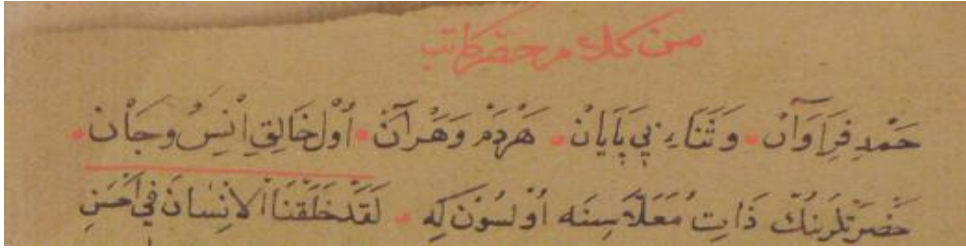 من كلام حضر كاتب
حَمْدِ فِرَاوَانْ وَثَنَاءِ بِي پَايَانْ هَرْدَمْ وَهَرْآنْ اُولْ خَالِقِ اِنْسُ وجَانْ
حَضْرَتْلَرِينُكْ ذَاتِ مُعَلَّاسِنَه اُولْسُونْ كِه لَقَدْ خَلَقْنَا الْاِنْسَانَ فِي اَحْسَنِ